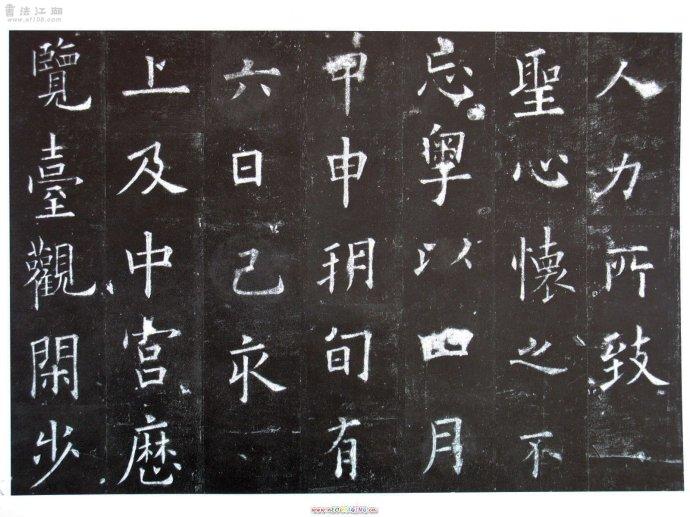 書法江湖
www.sf108.com
人力所致
聖心懷之不
忘粵以四月
甲申朔旬有
六日己亥
上及中宮歷
覽臺觀閑步